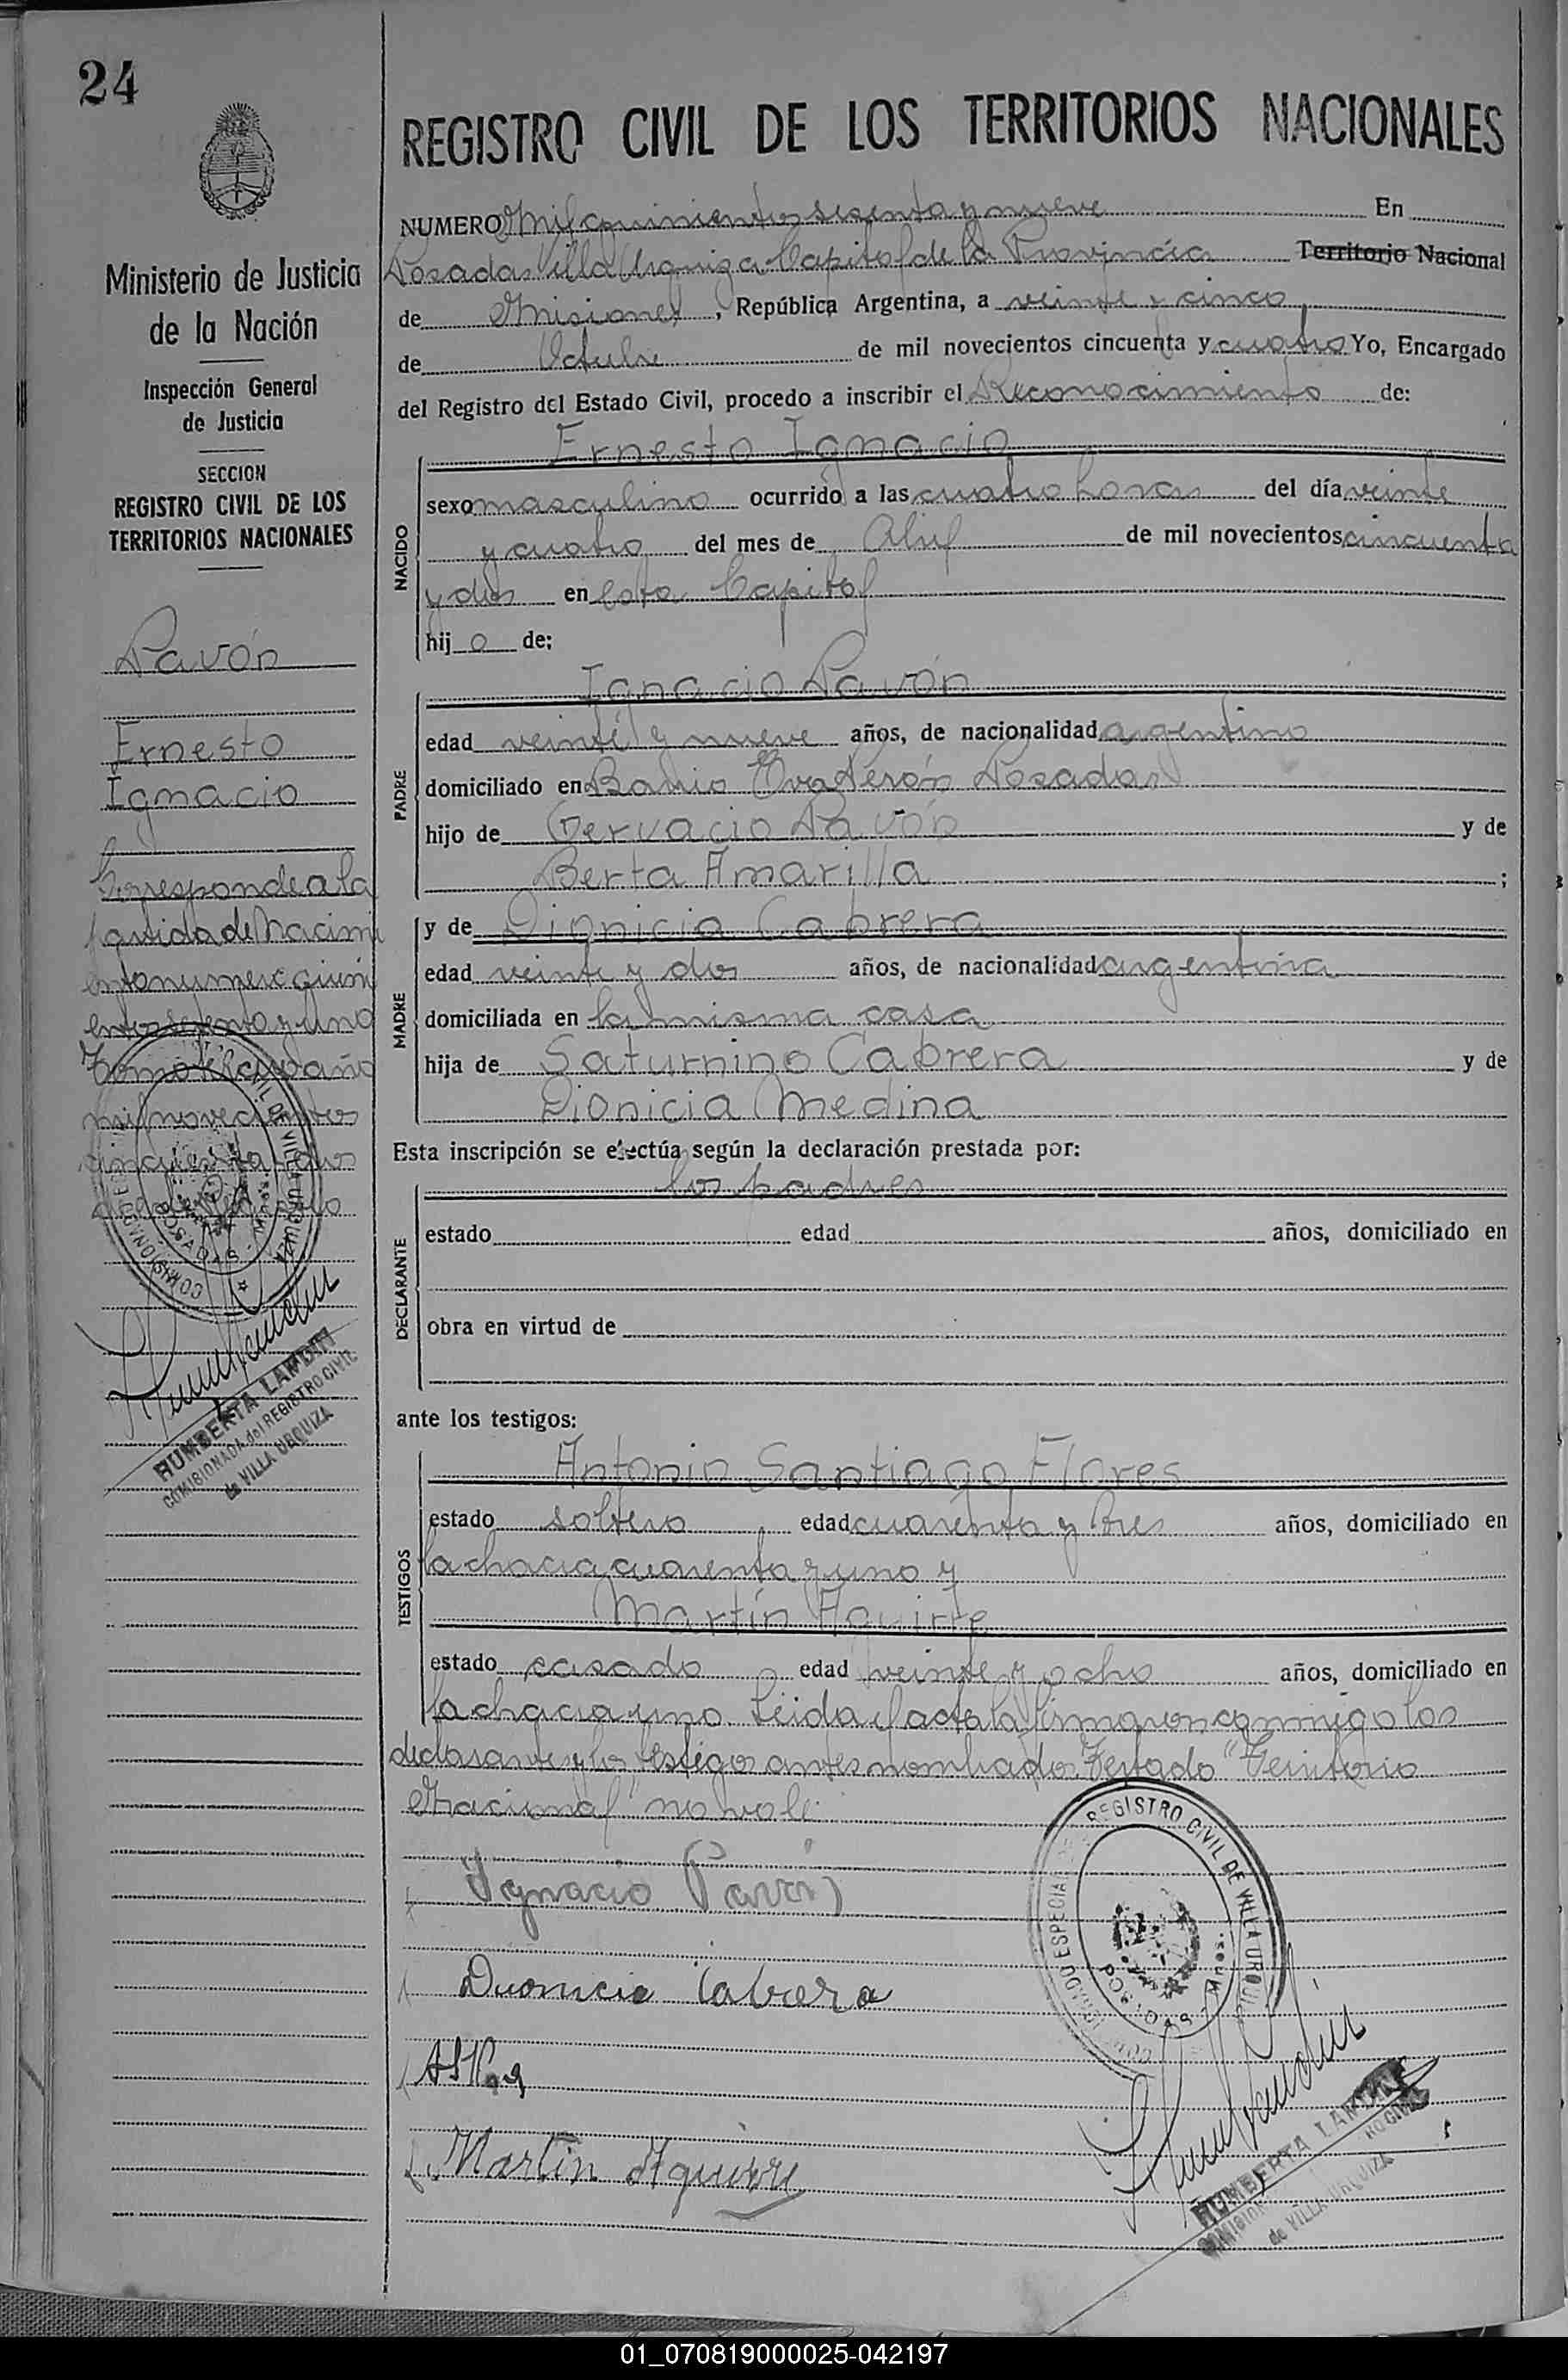 24
Ministerio de Justicia
de la Nación
Inspección General
de Justicia
SECCION
REGISTRO CIVIL DE LOS
TERRITORIOS NACIONALES
Pavón
Ernesto
Ignacio
Corresponde a la
partida de Nacimi
ento numero quini
entos sesenta y uno
Tomo del año
mil novecientos
cincuenta y dos
HUMBERTA LANDIN
COMISIONADA del REGISTRO CIVIL
de VILLA URQUIZA
REGISTRO CIVIL DE LOS TERRITORIOS NACIONALES
NUMERO Mil quinientos sesenta y nueve En
Posadas Villa Urquiza Capital de la Provincia Territorio Nacional
de Misiones, República Argentina, a veinte y cinco
de Octubre de mil novecientos cincuenta y cuatro Yo, Encargado
del Registro del Estado Civil, procedo a inscribir el Reconocimiento de:
Ernesto Ignacio
NACIDO
sexo masculino ocurrido a las cuatro horas del día veinte
y cuatro del mes de Abril de mil novecientos cincuenta
y dos en esta Capital
hijo de:
Ignacio Pavón
PADRE
edad veinte y nueve años, de nacionalidad argentino
domiciliado en Barrio Eva Perón Posadas
hijo de Gervacio Pavón y de
Berta Amarilla;
MADRE
y de Dionicia Cabrera
edad veinte y dos años, de nacionalidad argentina
domiciliada en la misma casa
hija de Saturnino Cabrera y de
Dionicia Medina
Esta inscripción se efectúa según la declaración prestada por:
los padres
DECLARANTE
estado edad años, domiciliado en
obra en virtud de
ante los testigos:
Antonio Santiago Flores
TESTIGOS
estado soltero edad cuarenta y tres años, domiciliado en
la chacra cuarenta y uno y
Martín Aguirre
estado casado edad veinte y ocho años, domiciliado en
la chacra uno Leida el acta la firmaron conmigo los
declarantes y los testigos antes nombrados. Testado "Territorio
Nacional" no vale.
Ignacio Pavón
Dionicia Cabrera
Martin Aguirre
REGISTRO CIVIL DE VILLA URQUIZA
HUMBERTA LANDIN
de VILLA URQUIZA
01_070819000025-042197